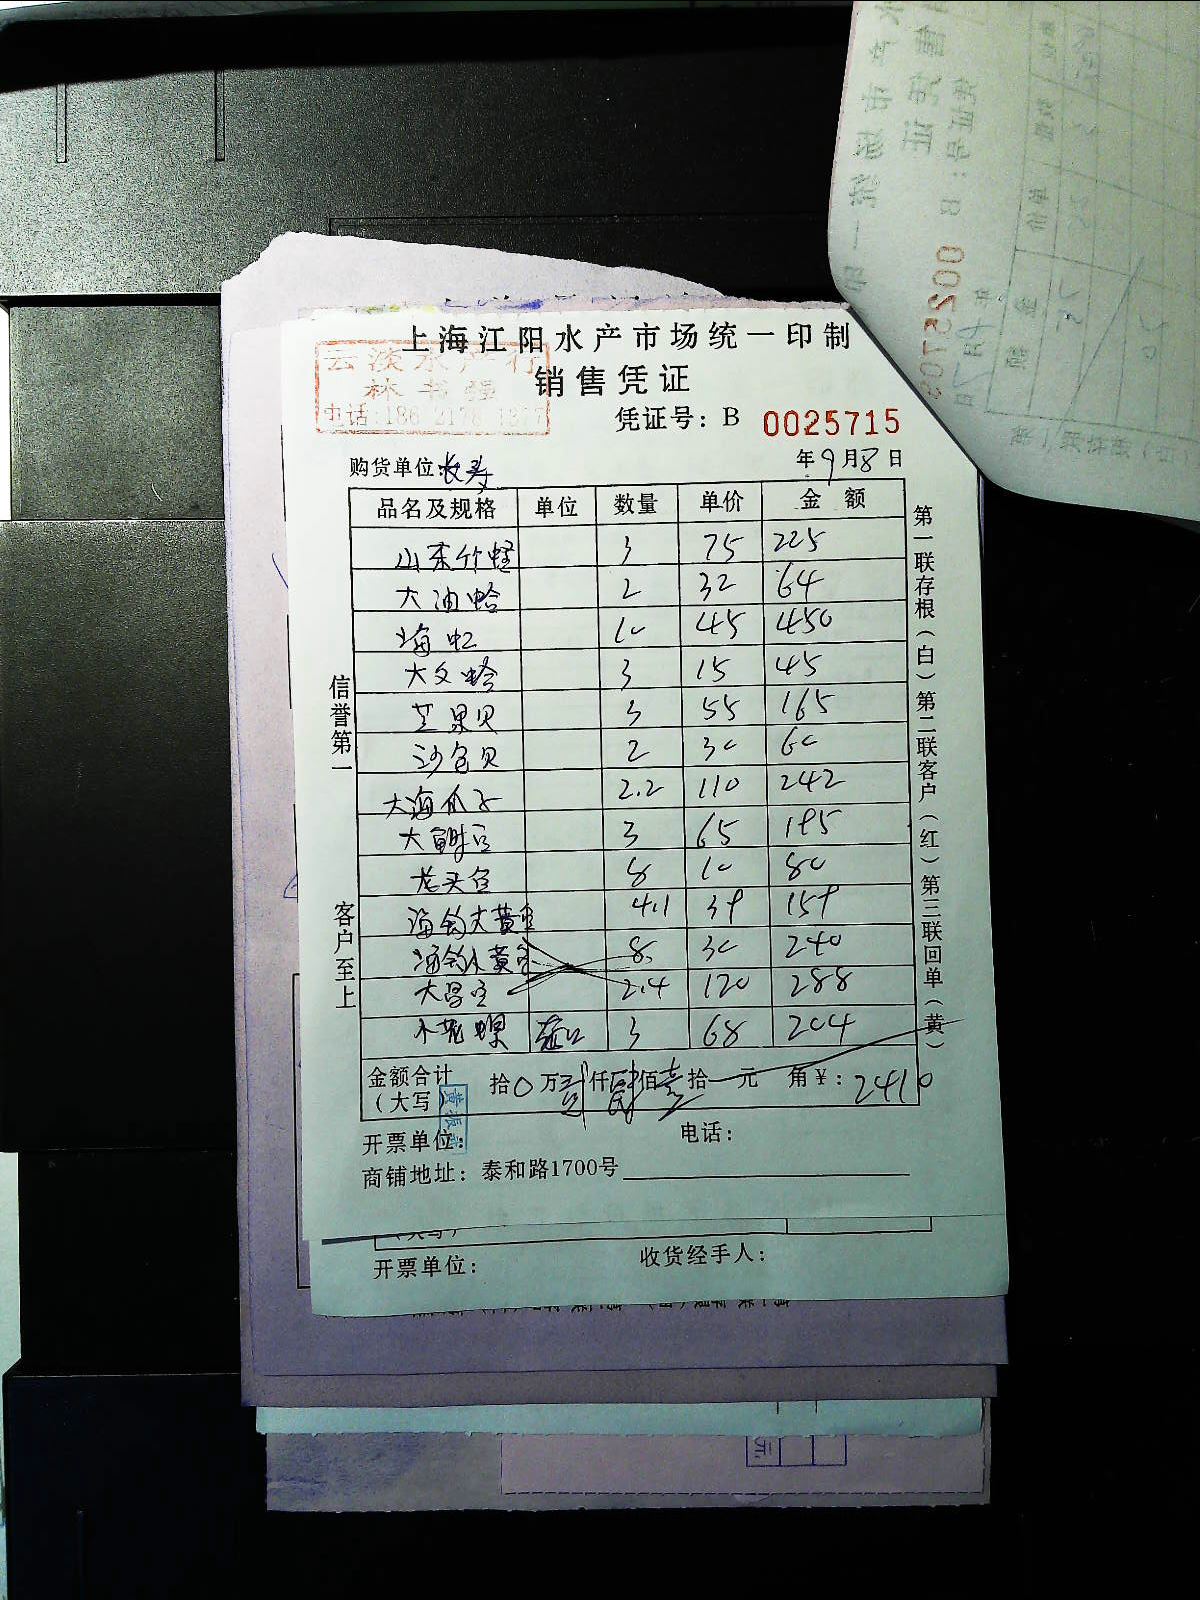 上海江阳水产市场统一印制
云淡水产行
林书强
电话:186 2178 1377
销售凭证
凭证号：B 0025715
购货单位:长寿 年9月8日
品名及规格 单位 数量 单价 金额
山东竹蛏 3 75 225
大油蛤 2 32 64
海虹 10 45 450
大文蛤 3 15 45
芒果贝 3 55 165
沙包贝 2 30 60
大海瓜子 2.2 110 242
3 65 195
龙头鱼 8 10 80
海钓大黄鱼 4.1 39 159
海钓小黄鱼 8 30 240
大昌鱼 2.4 120 288
小花螺 3 68 204
金额合计
（大写） 拾0万贰仟肆佰壹拾 元 角￥：2410
开票单位： 电话：
商铺地址：泰和路1700号
信誉第一
客户至上
第一联存根（白）第二联客户（红）第三联回单（黄）
开票单位： 收货经手人：